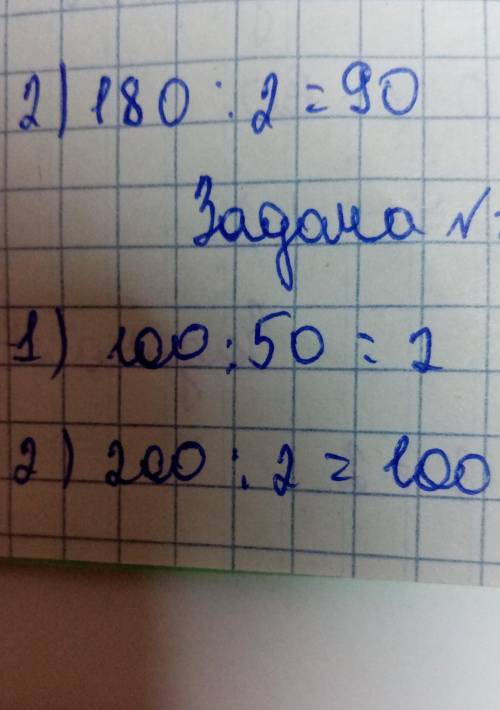 2) 180 : 2 = 90
Задача №
1) 100 : 50 = 2
2) 200 : 2 = 100